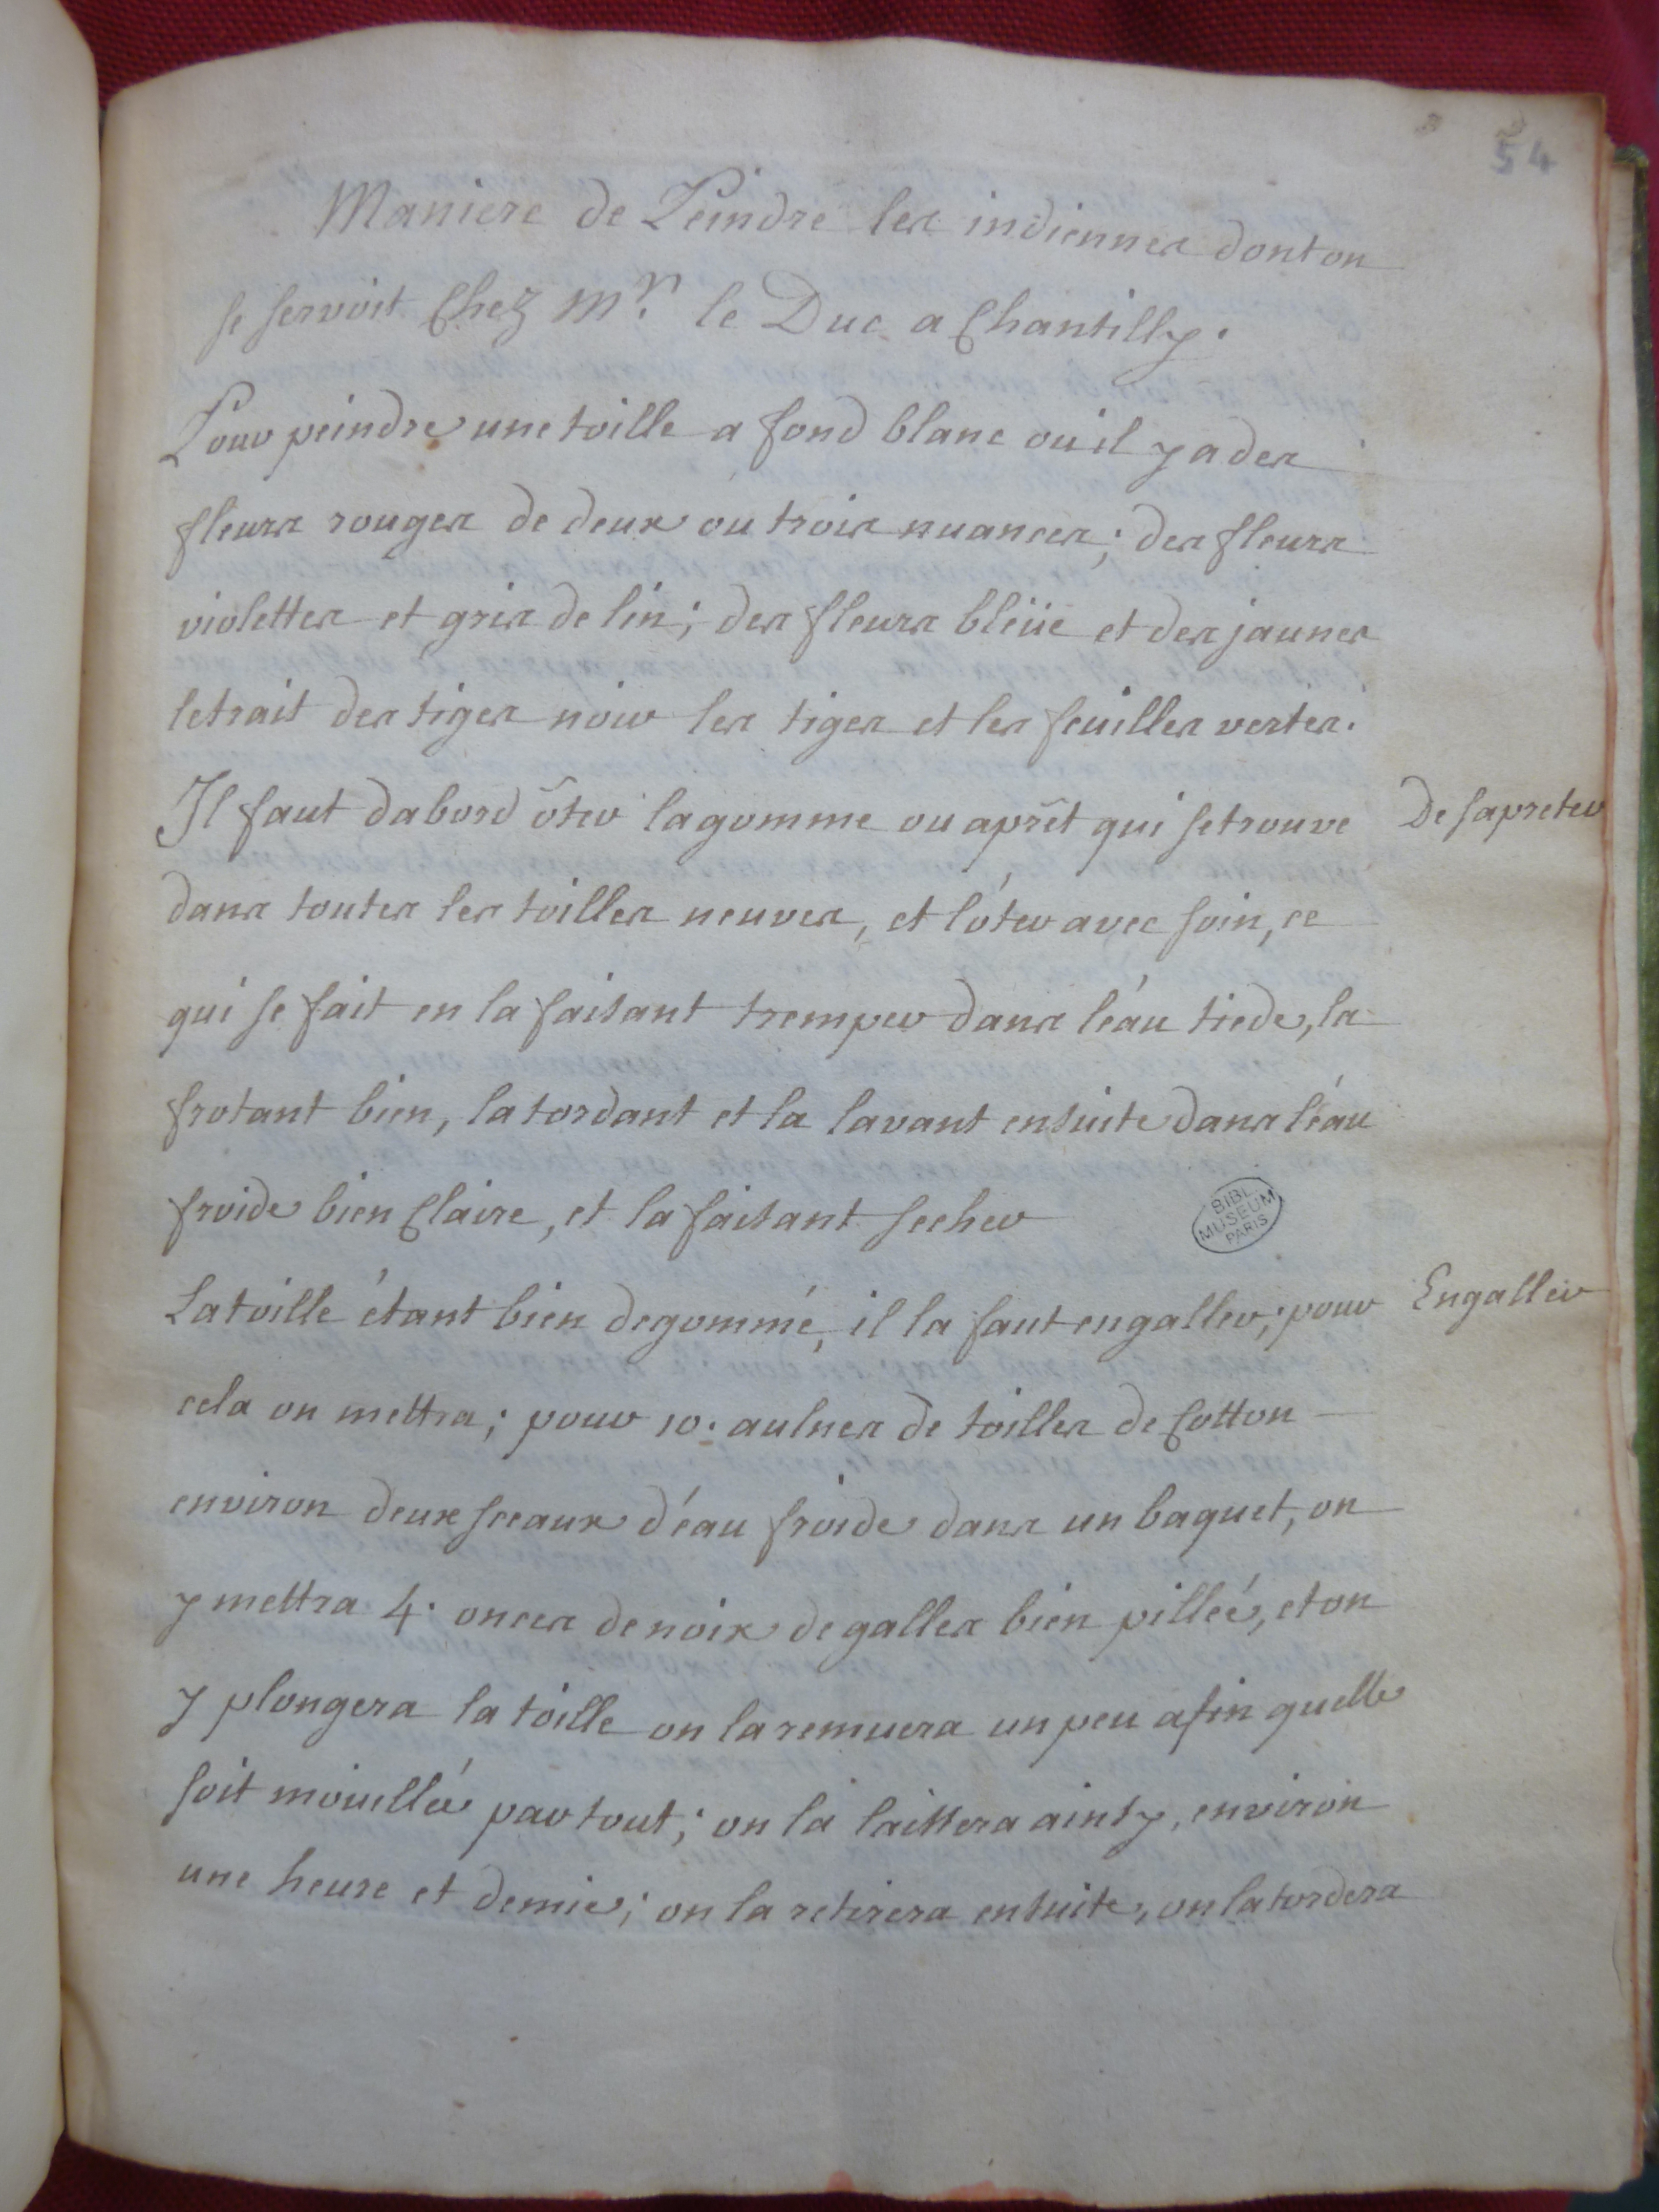 54
Maniere de Peindre les indiennes dont on
se servoit Chez Mr. le Duc a Chantilly.
Pour peindre une toille a fond blanc ou il y a des
fleurs rouges de deux ou trois nuances; des fleurs
violettes et gris de lin; des fleurs bleüe et des jaunes
le trait des tiges noir les tiges et les feuilles vertes.
Il faut dabord ôter la gomme ou aprêt qui se trouve
De sapreter
dans toutes les toilles neuves, et lóter avec soin, ce
qui se fait en la faisant tremper dans léau tiede, la
frotant bien, la tordant et la lavant ensuite dans léau
froide bien Claire, et la faisant secher
BIBL.
MUSEUM
PARIS
La toille étant bien degommé, il la faut engaller; pour
Engaller
cela on mettra; pour 10. aulnes de toilles de Cotton
environ deux sceaux d'éau froide dans un baquet, on
y mettra 4. onces de noix de galles bien pilleé, et on
y plongera la toille on la remuera un peu afin quelle
soit mouillée par tout; on la laissera ainsy, environ
une heure et demie; on la retirera ensuite, on la tordera